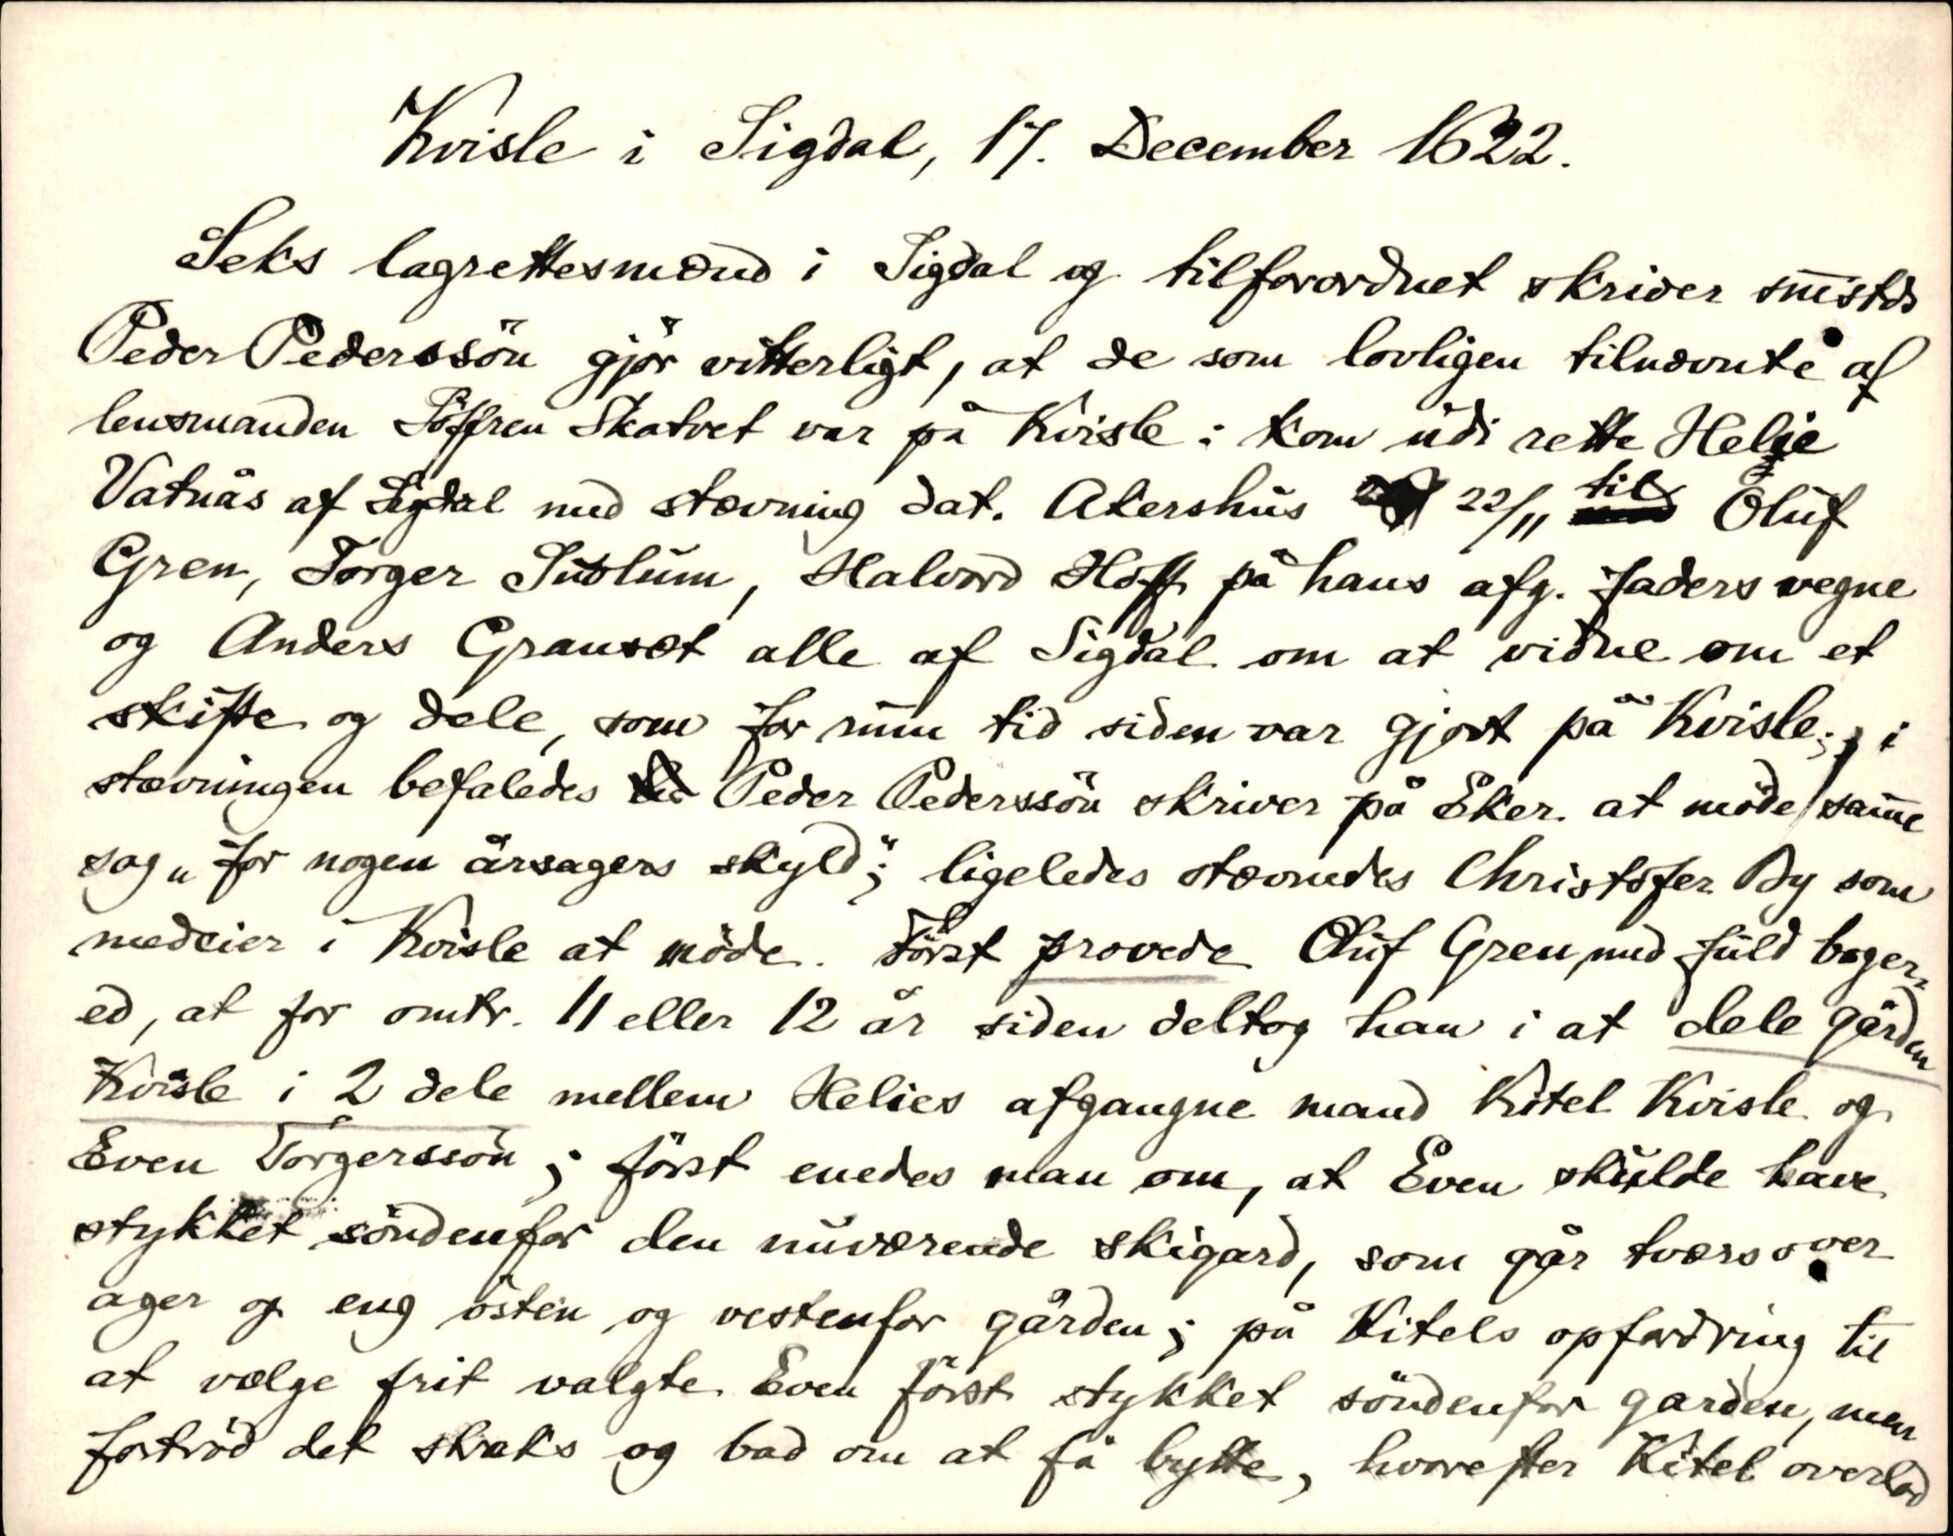 Kvisle i Sigdal, 17. December 1622.
Seks lagrettesmænd i Sigdal og tilforordnet skriver sm̅stds
Peder Pederssön gjör vitterligt, at de som lovligen tilnævnte af
lensmanden Söffren Skatvet var på Kvisle: kom udi rette Helie
Vatnås af Sigdal med stævning dat. Akershus 22/11 til Oluf
Gren, Torger Suslum, Halvord Hoff på hans afg. faders vegne
og Anders Granset alle af Sigdal om at vidne om et
skifte og dele, som for rum tid siden var gjort på Kvisle; i
stævningen befaledes Peder Pederssön skriver på Eker at möde i sam̅e
sag „for nogen årsagers skyld"; ligeledes stævnedes Christoffer By som
medeier i Kvisle at möde. Först provede Oluf Gren, med fuld boger-
ed, at for omtr. 11 eller 12 år siden deltog han i at dele gården
Kvisle i 2 dele mellem Helies afgangne mand Kitel Kvisle og
Even Torgerssön; först enedes man om, at Even skulde have
stykket söndenfor den nuværende skigard, som går tværs over
ager og eng östen og vestenfor gården; på Kitels opfordring til
at vælge frit valgte Even först stykket söndenfor garden, men
fortröd det straks og bad om at få bytte, hvorefter Kitel overlod